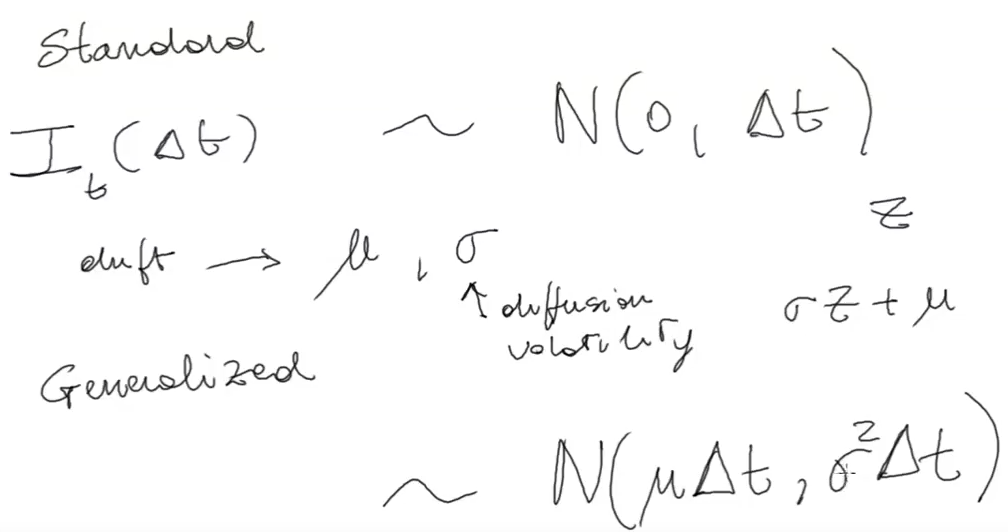 Standard
I_t(Δt) ~ N(0, Δt)
z
drift → μ, σ
↑ diffusion
volatility
σz + μ
Generalized
~ N(μΔt, σ²Δt)